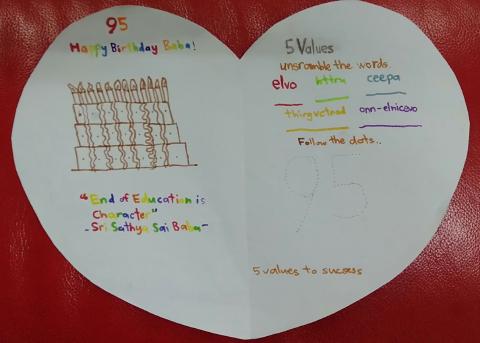 95
Happy Birthday Baba!
"End of Education is
Character"
- Sri Sathya Sai Baba -
5 Values
unsramble the words.
elvo httru ceepa
thirgvctnod onn-elnicevo
Follow the dots..
95
5 values to success